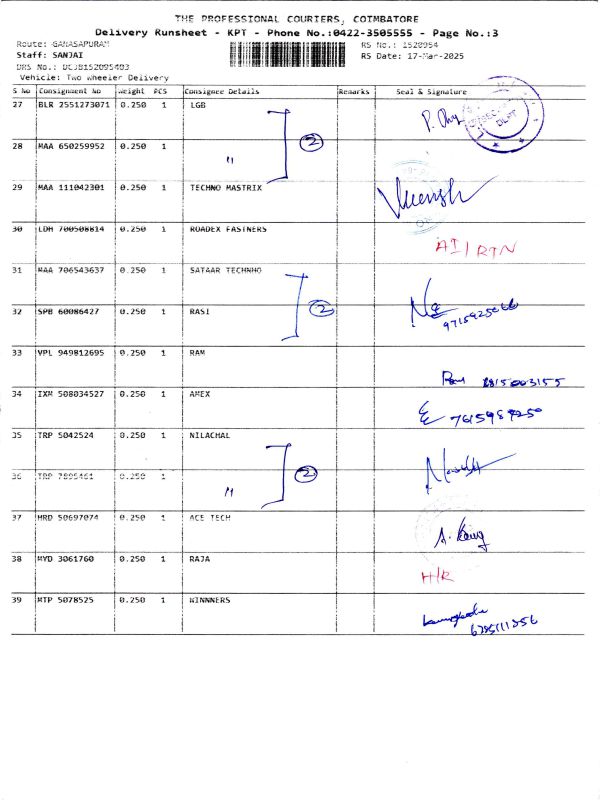 THE PROFESSIONAL COURIERS, COIMBATORE
Delivery Runsheet - KPT - Phone No.:0422-3505555 - Page No.:3
Route: GANASAPURAM RS No.: 1520954
Staff: SANJAI RS Date: 17-Mar-2025
DRS No.:
Vehicle: Two Wheeler Delivery
S No Consignment No Weight PCS Consignee Details Remarks Seal & Signature
27 BLR 2551273071 0.250 1 LGB
28 MAA 650259952 0.250 1 " 2
29 MAA 111042301 0.250 1 TECHNO MASTRIX
30 LDH 700508814 0.250 1 ROADEX FASTNERS AI/RTN
31 MAA 706543637 0.250 1 SATAAR TECHNHO
32 SPB 60086427 0.250 1 RASI 2
33 VPL 949812695 0.250 1 RAM
34 IXM 508034527 0.250 1 AMEX
35 TRP 5042524 0.250 1 NILACHAL
36 TRP 7895461 0.250 1 " 2
37 HRD 50697074 0.250 1 ACE TECH
38 MYD 3061760 0.250 1 RAJA H/R
39 MTP 5078525 0.250 1 WINNNERS